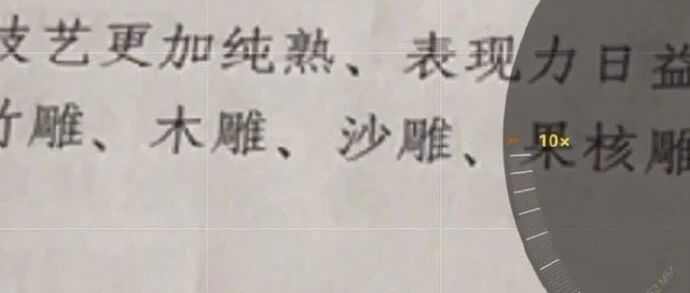 技艺更加纯熟、表现力日益
竹雕、木雕、沙雕、果核雕
10×